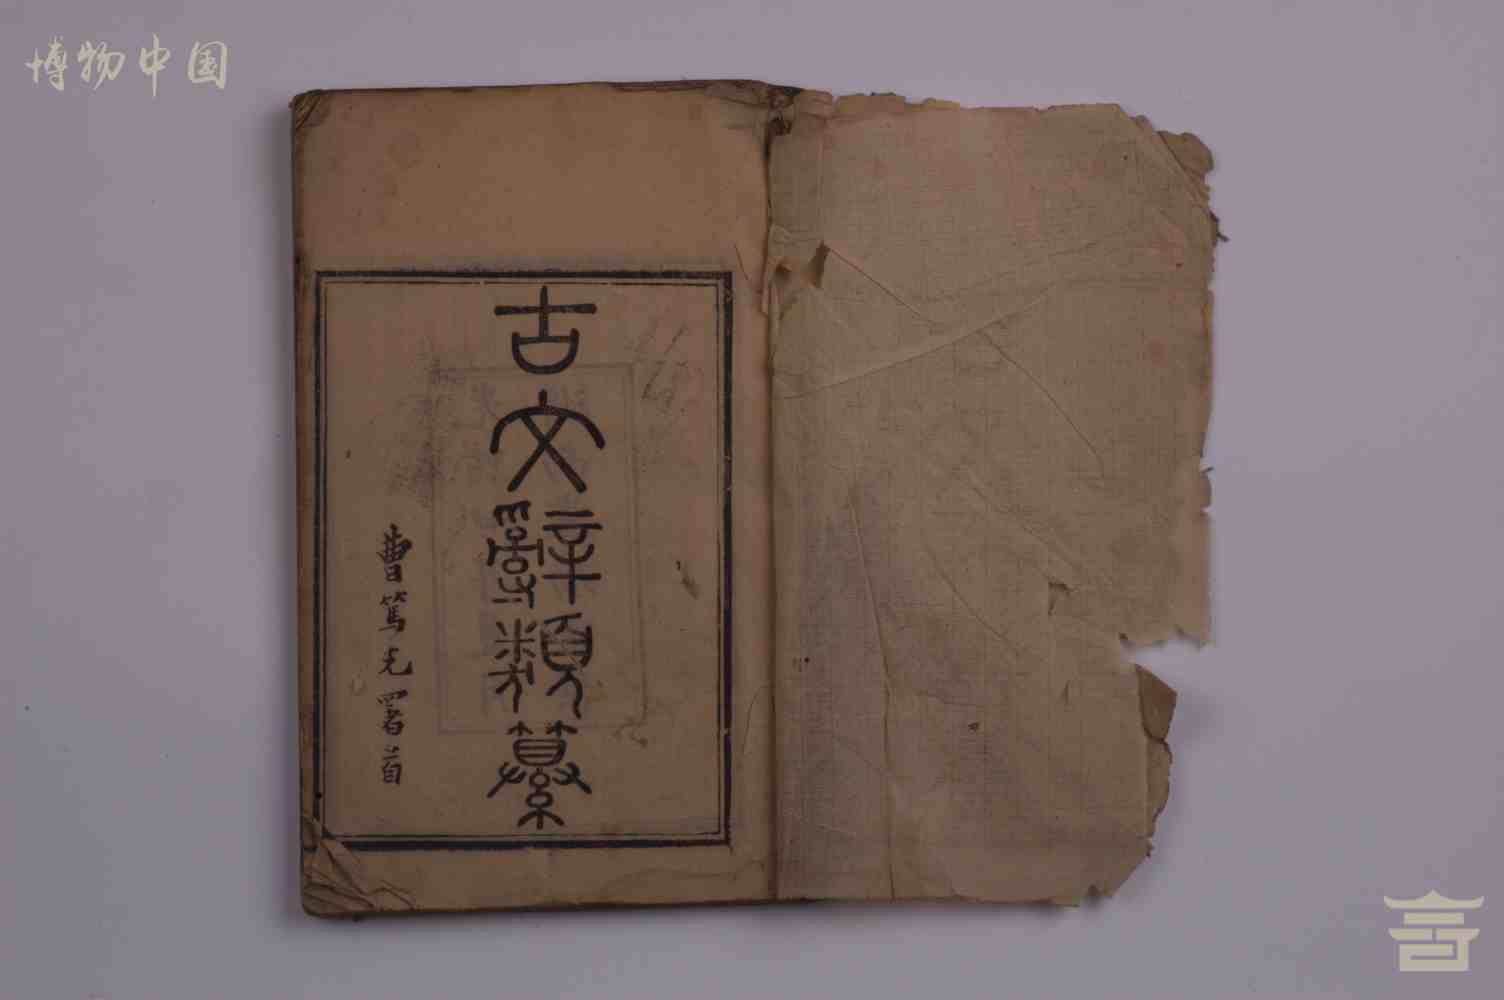 博物中国
古文辭類纂
曹篤光署首